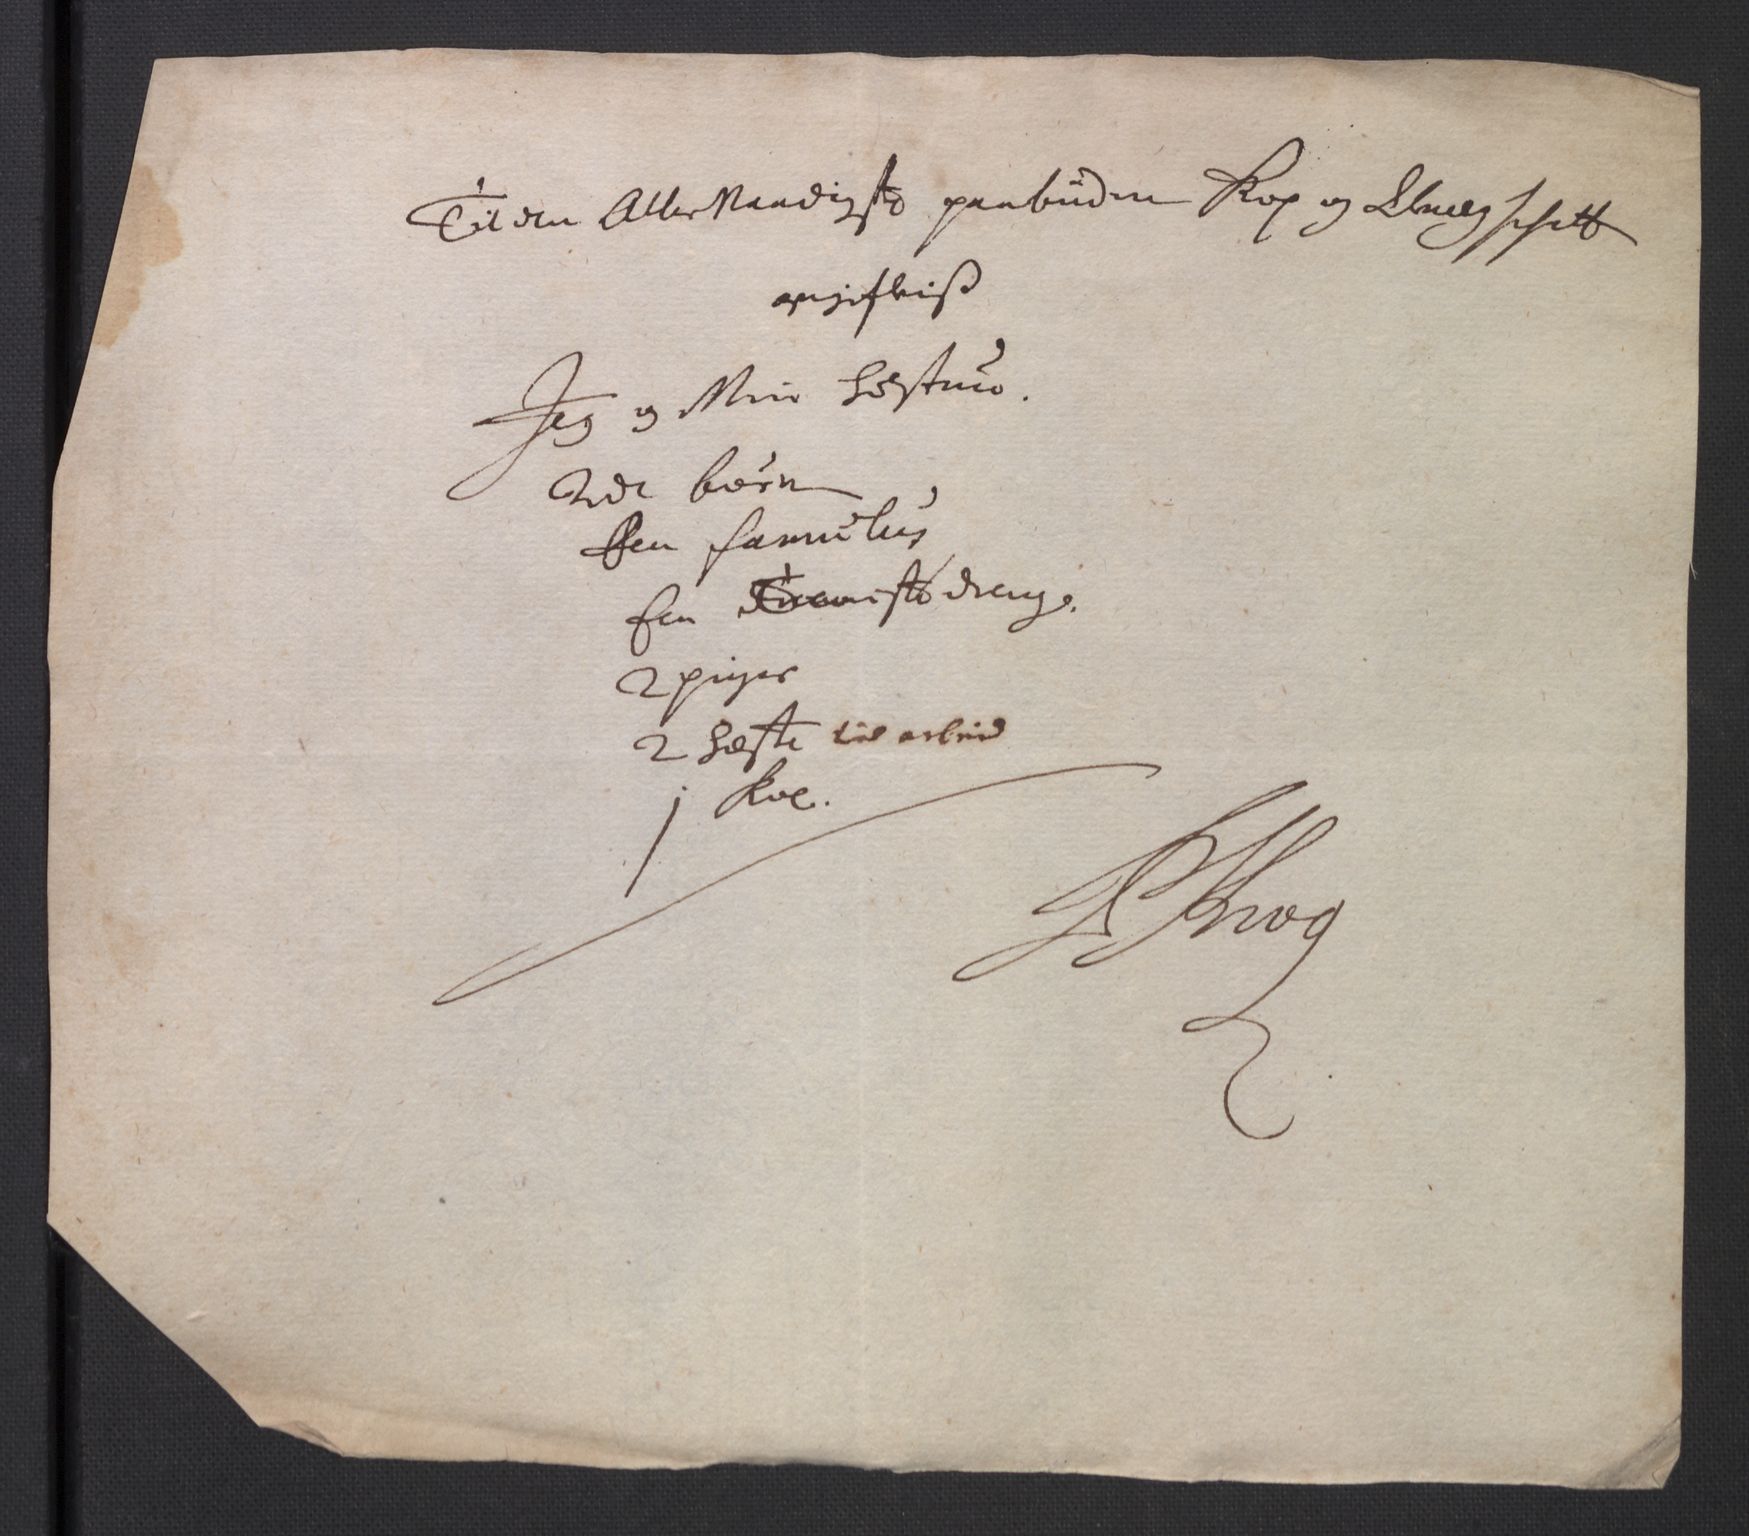 Til den Aller Naadigste paabüden Kop og Qvæg schatt
angifvis
Jeg og Min Hostrue.
2de børn
Een famulus
Een Tienniste drenge.
2 piger
2 Heste til arbeid
j Koe.
Krog